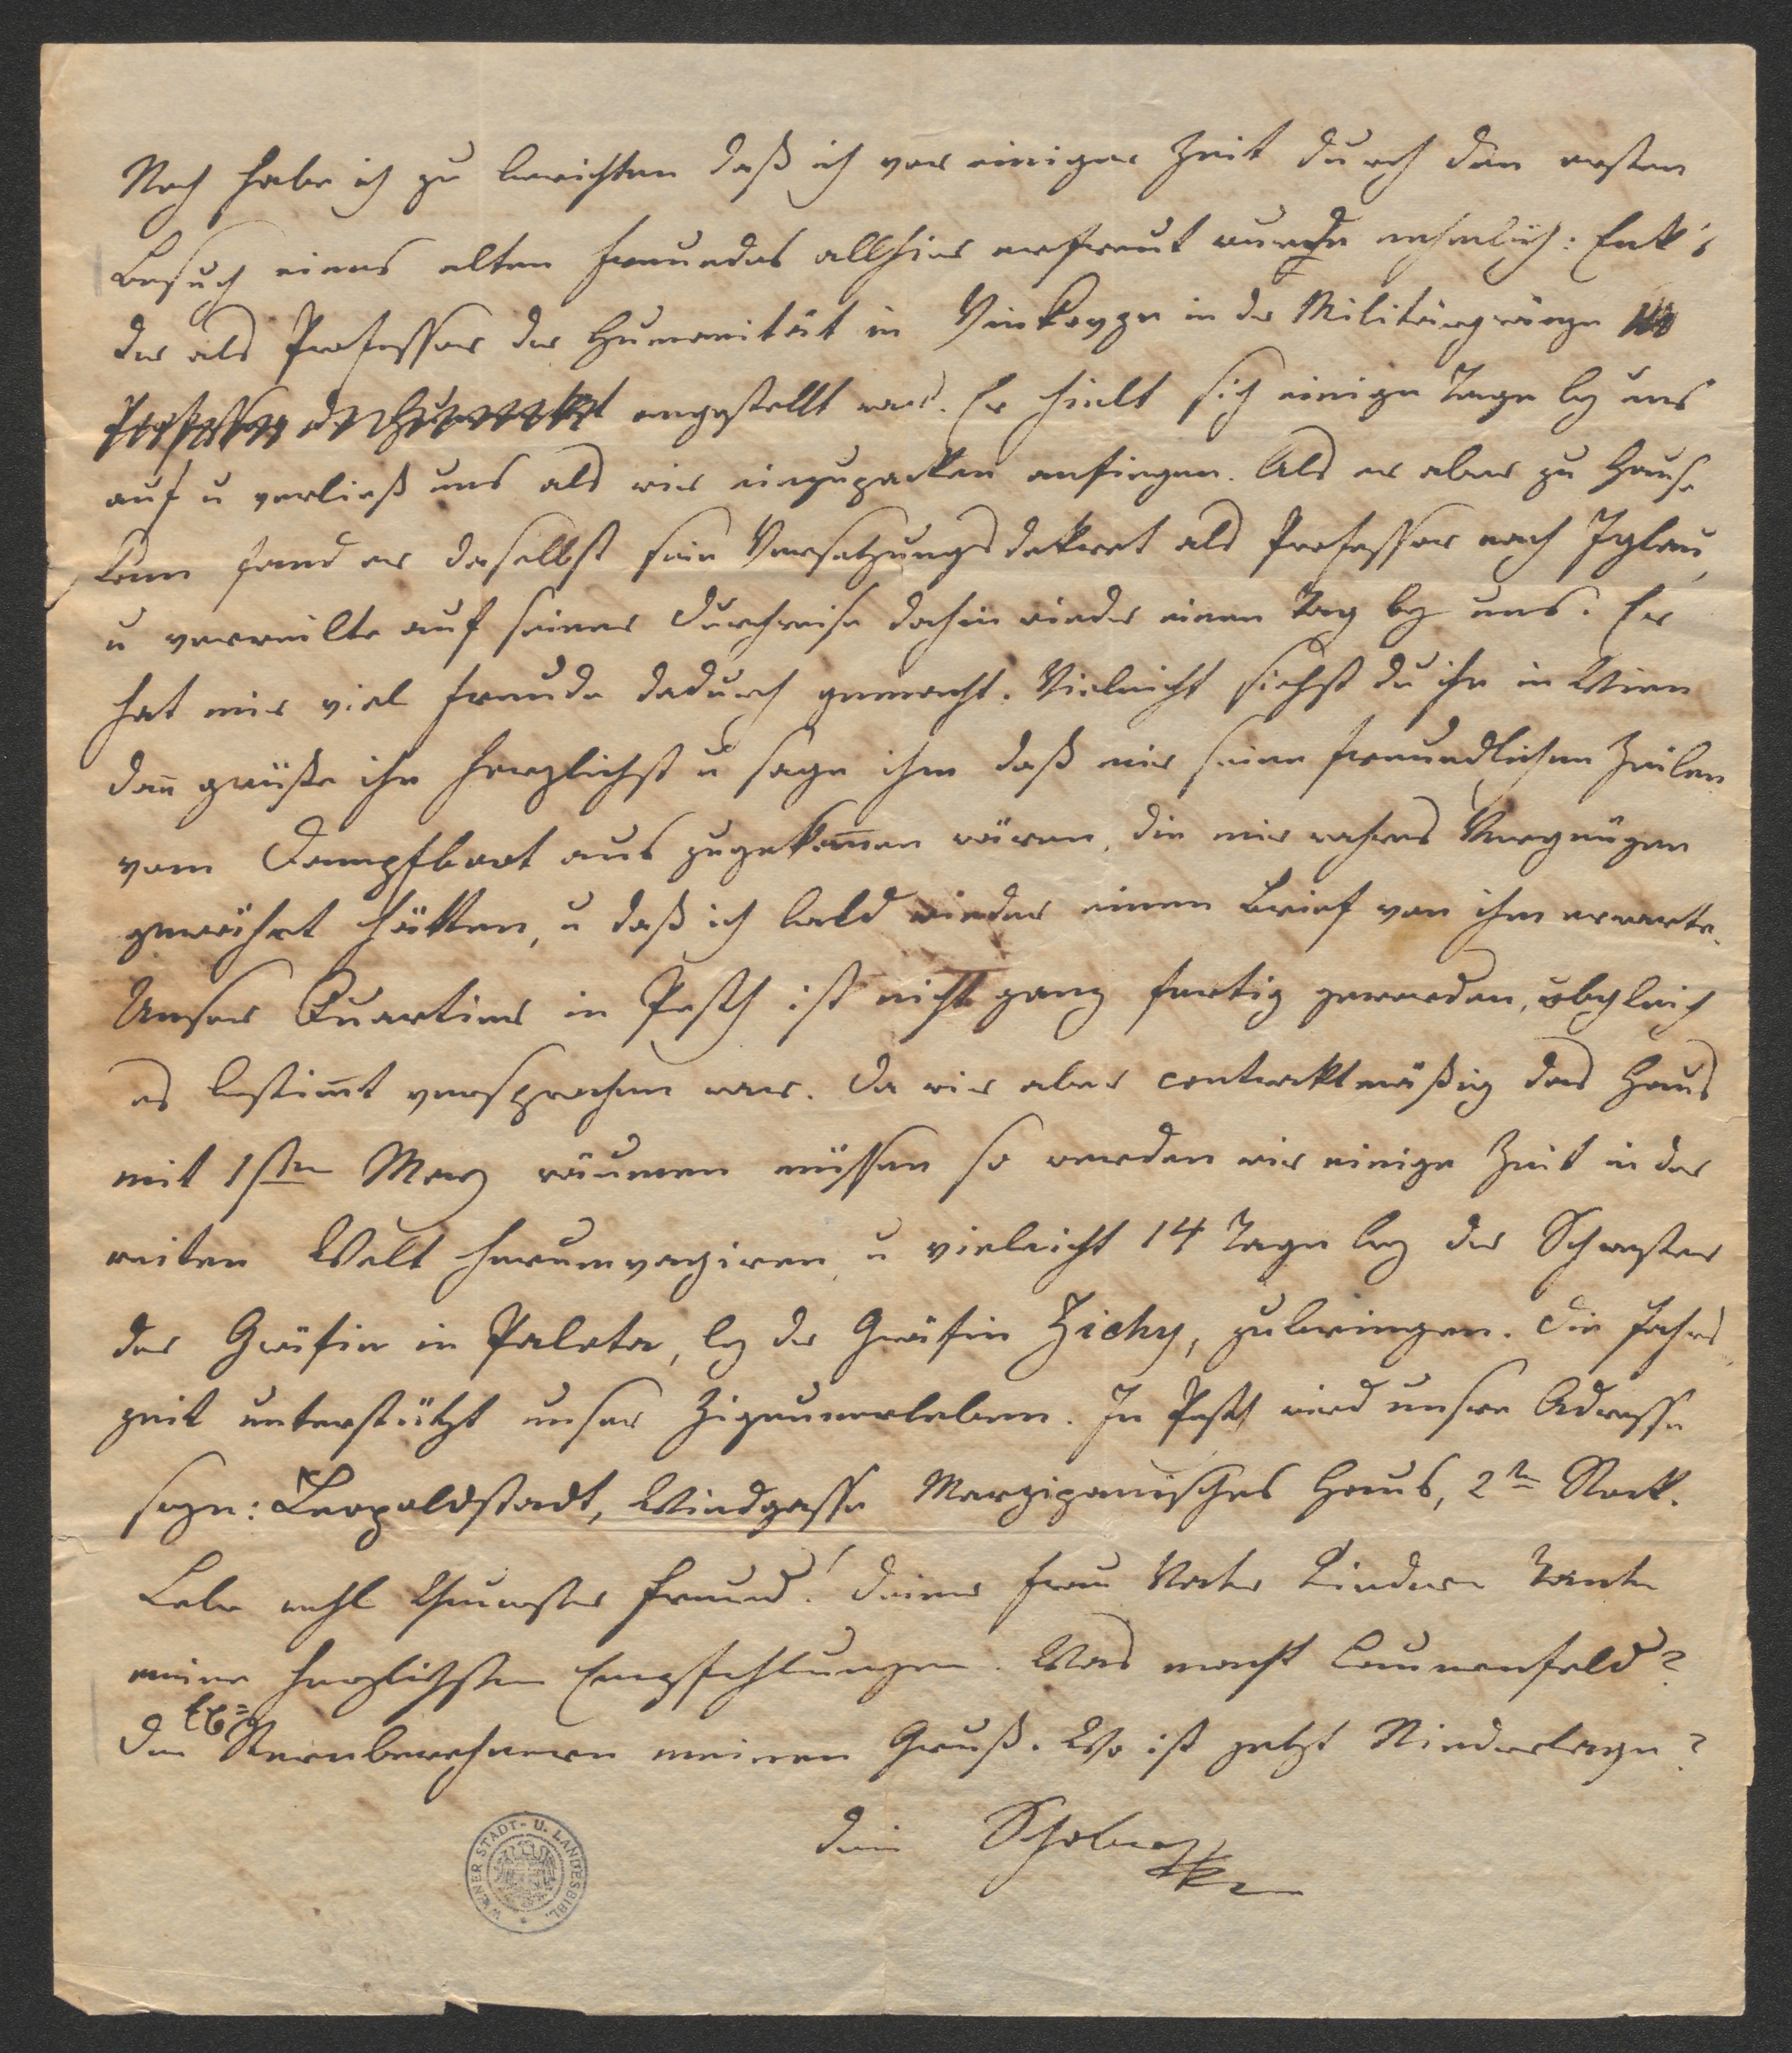 Noch habe ich zu berichten daß ich vor einiger Zeit durch den ersten
Besuch eines alten Freundes allhier erfreut wurde nehmlich: Enk's
der als Professor der Humanität in Vinkovze in der Militärgränze
angestellt war. Er hielt sich einige Tage bey uns
auf u verließ uns als wir einzupacken anfingen. Als er aber zu Hause
kam fand er daselbst sein Versetzungsdekret als Professor nach Iglau,
u verweilte auf seiner Durchreise dahin wieder einen Tag bey uns. Er
hat mir viel Freude dadurch gemacht. Vieleicht siehst du ihn in Wien
dañ grüße ihn herzlichst u sage ihm daß mir seine freundlichen Zeilen
vom Dampfboot aus zugekom̄en wären, die mir wahres Vergnügen
gewährt hätten, u daß ich bald wieder einen Brief von ihm erwarte.
Unser Quartier in Pesth ist nicht ganz fertig geworden, obgleich
es bestim̄t versprochen war. Da wir aber contraktmäßig das Haus
mit 1sten May räumen müssen so werden wir einige Zeit in der
weiten Welt herumvagiren, u vieleicht 14 Tage bey der Schwester
der Gräfin in Palota, bey der Gräfin Zichy, zubringen. Die Jahres
zeit unterstützt unser Zigeunerleben. In Pesth wird unsre Adresse
seyn: Leopoldstadt, Windgasse Marzipanisches Haus, 2ten Stock.
Lebe wohl theuerster Freund! Deiner Frau Vater Kindern Tante
meine herzlichsten Empfehlungen. Was macht Bauernfeld?
Den Sternbewohnern meinen Gruß. Wo ist jetzt Niederlage?
Dein Schober
WIENER STADT- U. LANDESBIBL.